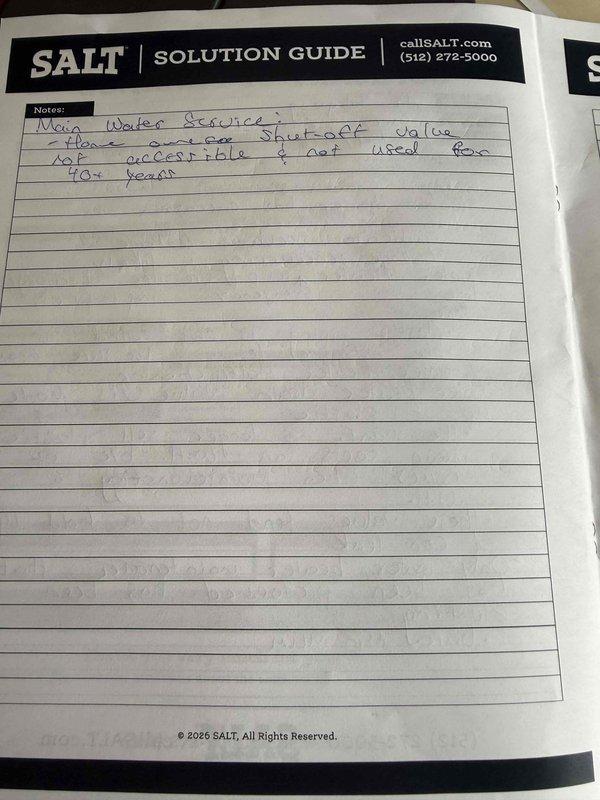 SALT | SOLUTION GUIDE | callSALT.com
(512) 272-5000
Notes:
Main Water Service:
- Home owner shut-off valve
not accessible & not used for
40+ years
© 2026 SALT, All Rights Reserved.